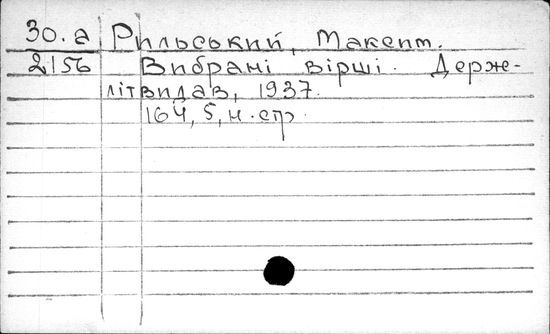 30.а Рильський, Максим.
2156 Вибрані вірші. Держ-
літвидав, 1937.
164, 5, н. стр.